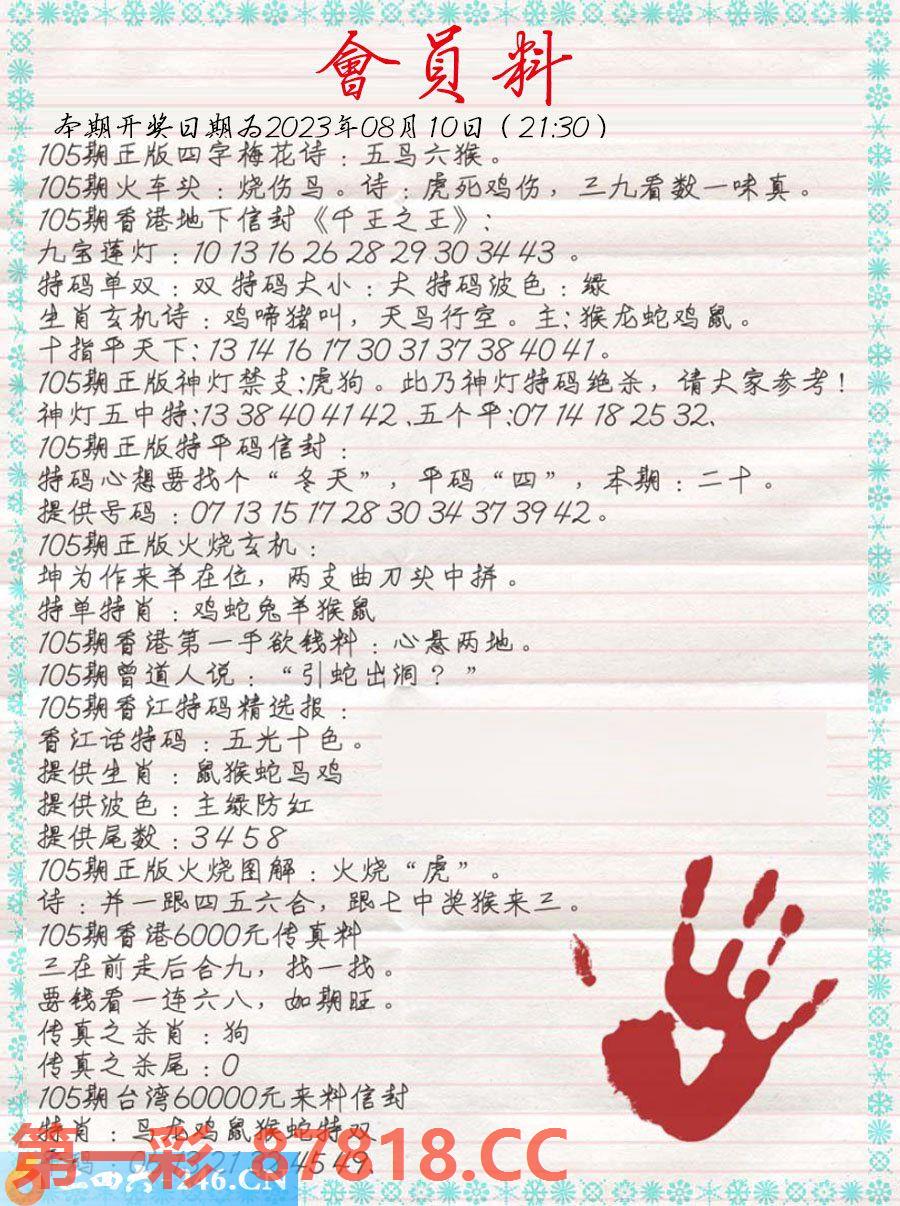 會員料
本期开奖日期为2023年08月10日（21:30）
105期正版四字梅花诗：五鸟六猴。
105期火车头：烧伤鸟。诗：虎死鸡伤，三九看数一味真。
105期香港地下信封《千王之王》：
九宝莲灯：10 13 16 26 28 29 30 34 43 。
特码单双：双 特码大小：大 特码波色：绿
生肖玄机诗：鸡啼猪叫，天鸟行空。主:猴龙蛇鸡鼠。
十指平天下:13 14 16 17 30 31 37 38 40 41。
105期正版神灯禁支:虎狗。此乃神灯特码绝杀，请大家参考！
神灯五中特:13 38 40 41 42 、五个平:07 14 18 25 32、
105期正版特平码信封：
特码心想要找个“冬天”，平码“四”，本期：二十。
提供号码：07 13 15 17 28 30 34 37 39 42。
105期正版火烧玄机：
坤为作来羊在位，两支曲刀头中拼。
特单特肖：鸡蛇兔羊猴鼠
105期香港第一手欲钱料：心悬两地。
105期曾道人说：“引蛇出洞？”
105期香江特码精选报：
香江话特码：五光十色。
提供生肖：鼠猴蛇马鸡
提供波色：主绿防红
提供尾数：3 4 5 8
105期正版火烧图解：火烧“虎”。
诗：并一跟四五六合，跟七中奖猴来三。
105期香港6000元传真料
三在前走后合九，找一找。
要钱看一连六八，如期旺。
传真之杀肖：狗
传真之杀尾：0
105期台湾60000元来料信封
特肖：马龙鸡鼠猴蛇特双
45 49、
第一彩 87818.CC
二四六 246.CN